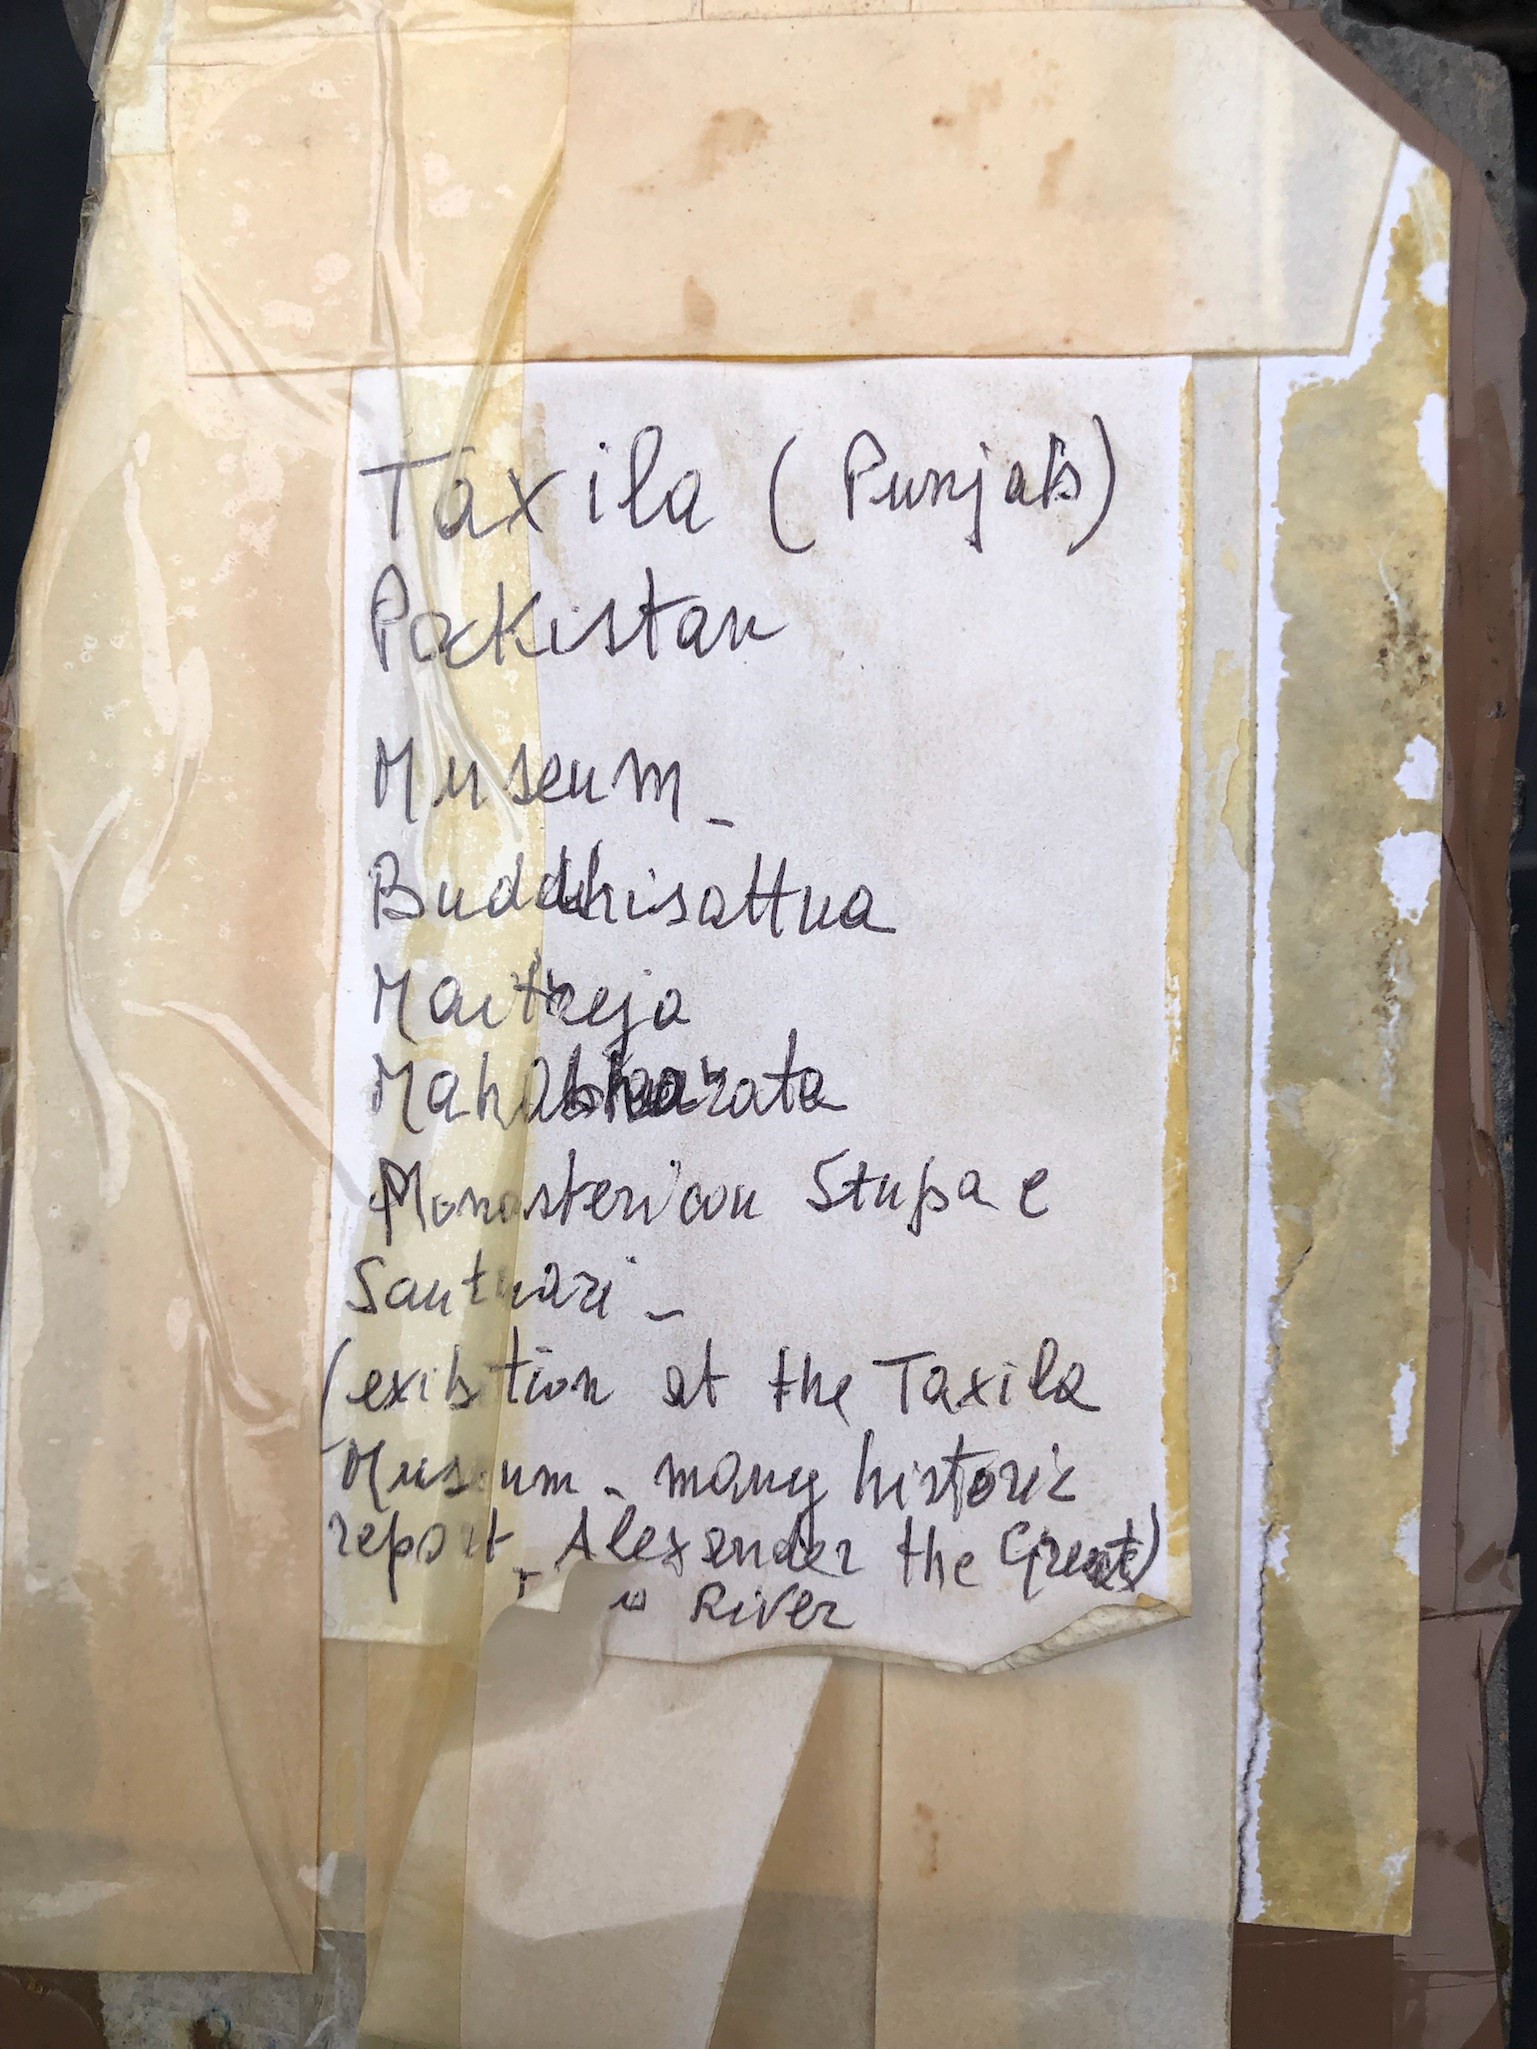 Taxila (Punjab)
Pakistan
Museum_
Buddhisattua
Maitreja
Mahabharata
Monasteri con Stupa e
Santuari_
(exibition at the Taxila
Museum_ many historic
report_ Alexander the Great)
River